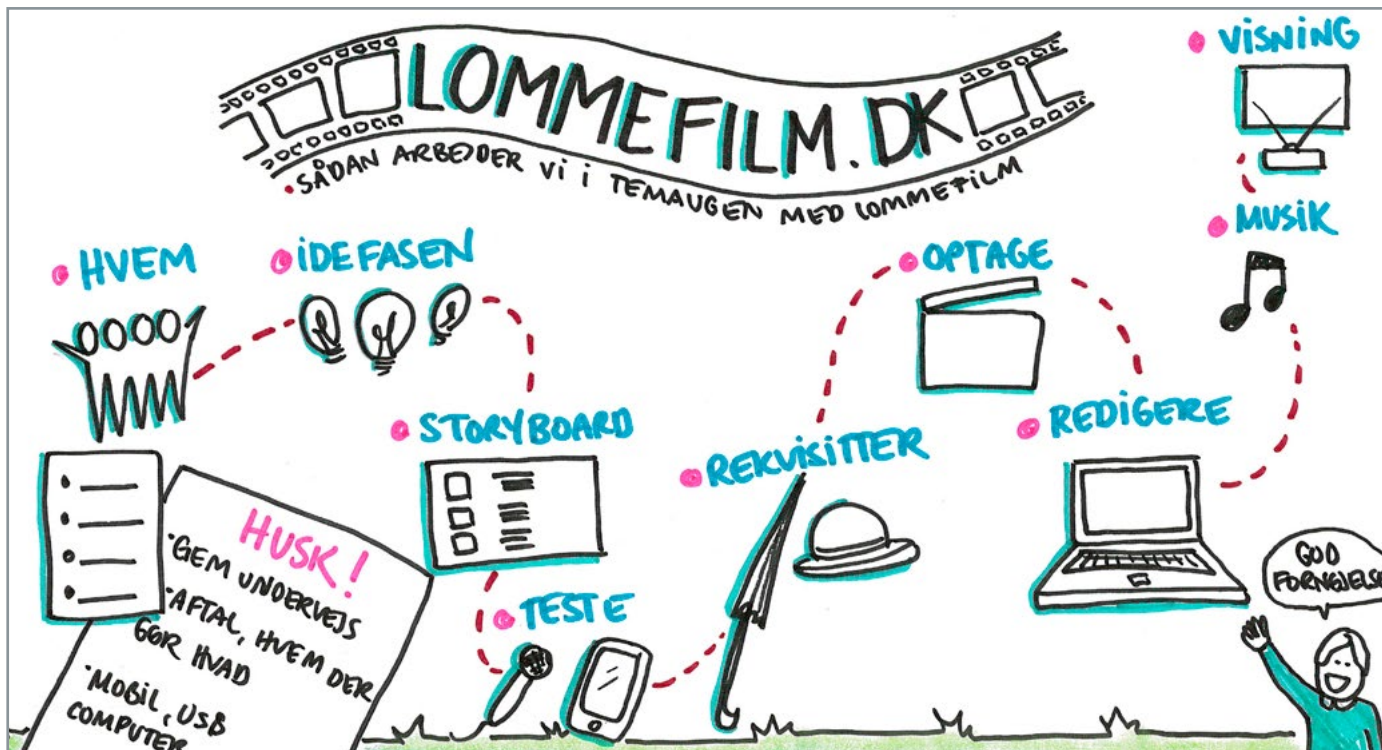 LOMMEFILM.DK
• SÅDAN ARBEJDER Vi i TEMAUGEN MED LOMMEFILM
• HVEM
• iDEFASEN
• STORYBOARD
• TESTE
• REKViSiTTER
• OPTAGE
• REDiGERE
• MUSiK
• ViSNiNG
HUSK!
• GEM UNDERVEJS
• AFTAL, HVEM DER
GØR HVAD
• MOBiL, USB
COMPUTER
GOD
FORNØJELSE